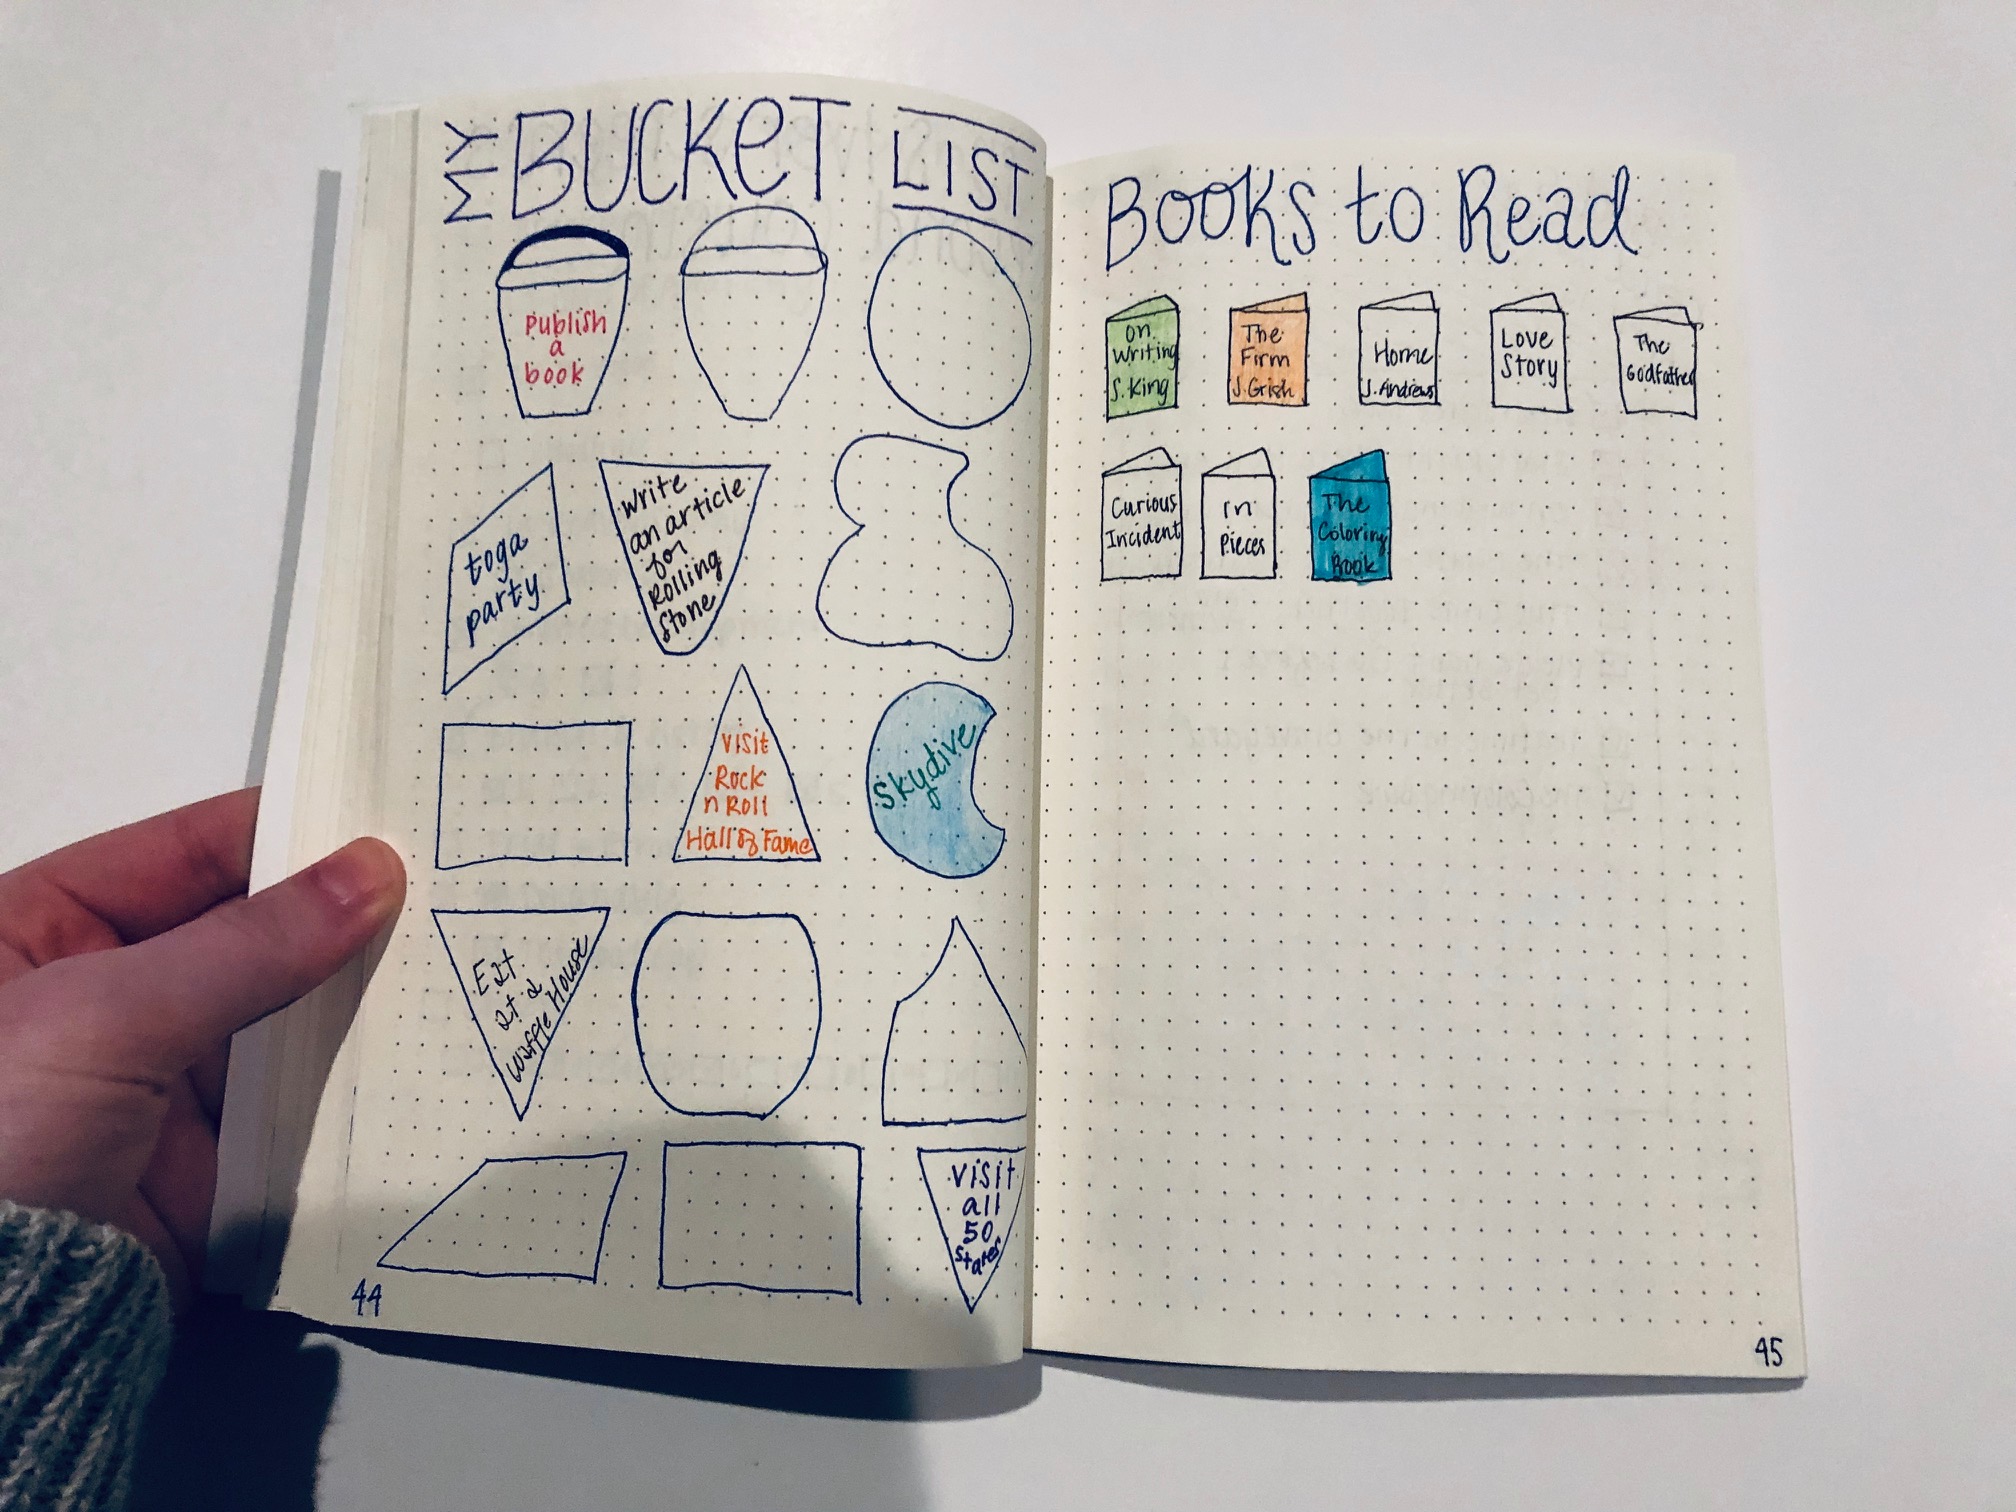 MY BUCKET LIST
Publish
a
book
toga
party
write
an article
for
Rolling
Stone
Visit
Rock
n Roll
Hall of Fame
Skydive
Eat
at a
Waffle House
Visit
all
50
States
44
Books to Read
On
Writing
S. King
The
Firm
J. Grish
Home
J. Andrews
Love
Story
The
Godfather
Curious
Incident
In
Pieces
The
Coloring
Book
45